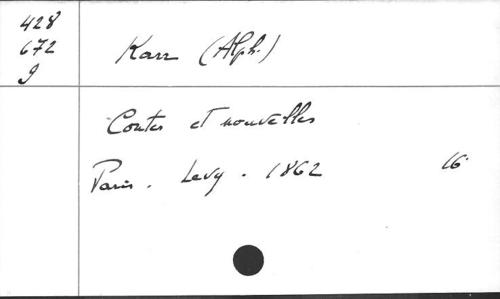 428
672
J
Karr (Alph.)
Contes et nouvelles
Paris. Levy. 1862 16°